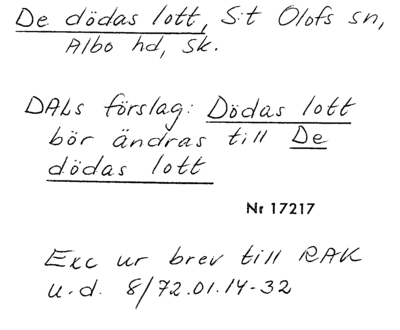 De dödas lott, S:t Olofs sn,
Albo hd, Sk.
DALs förslag: Dödas lott
bör ändras till De
dödas lott
Nr 17217
Exc ur brev till RAK
u.d. 8/72.01.14-32